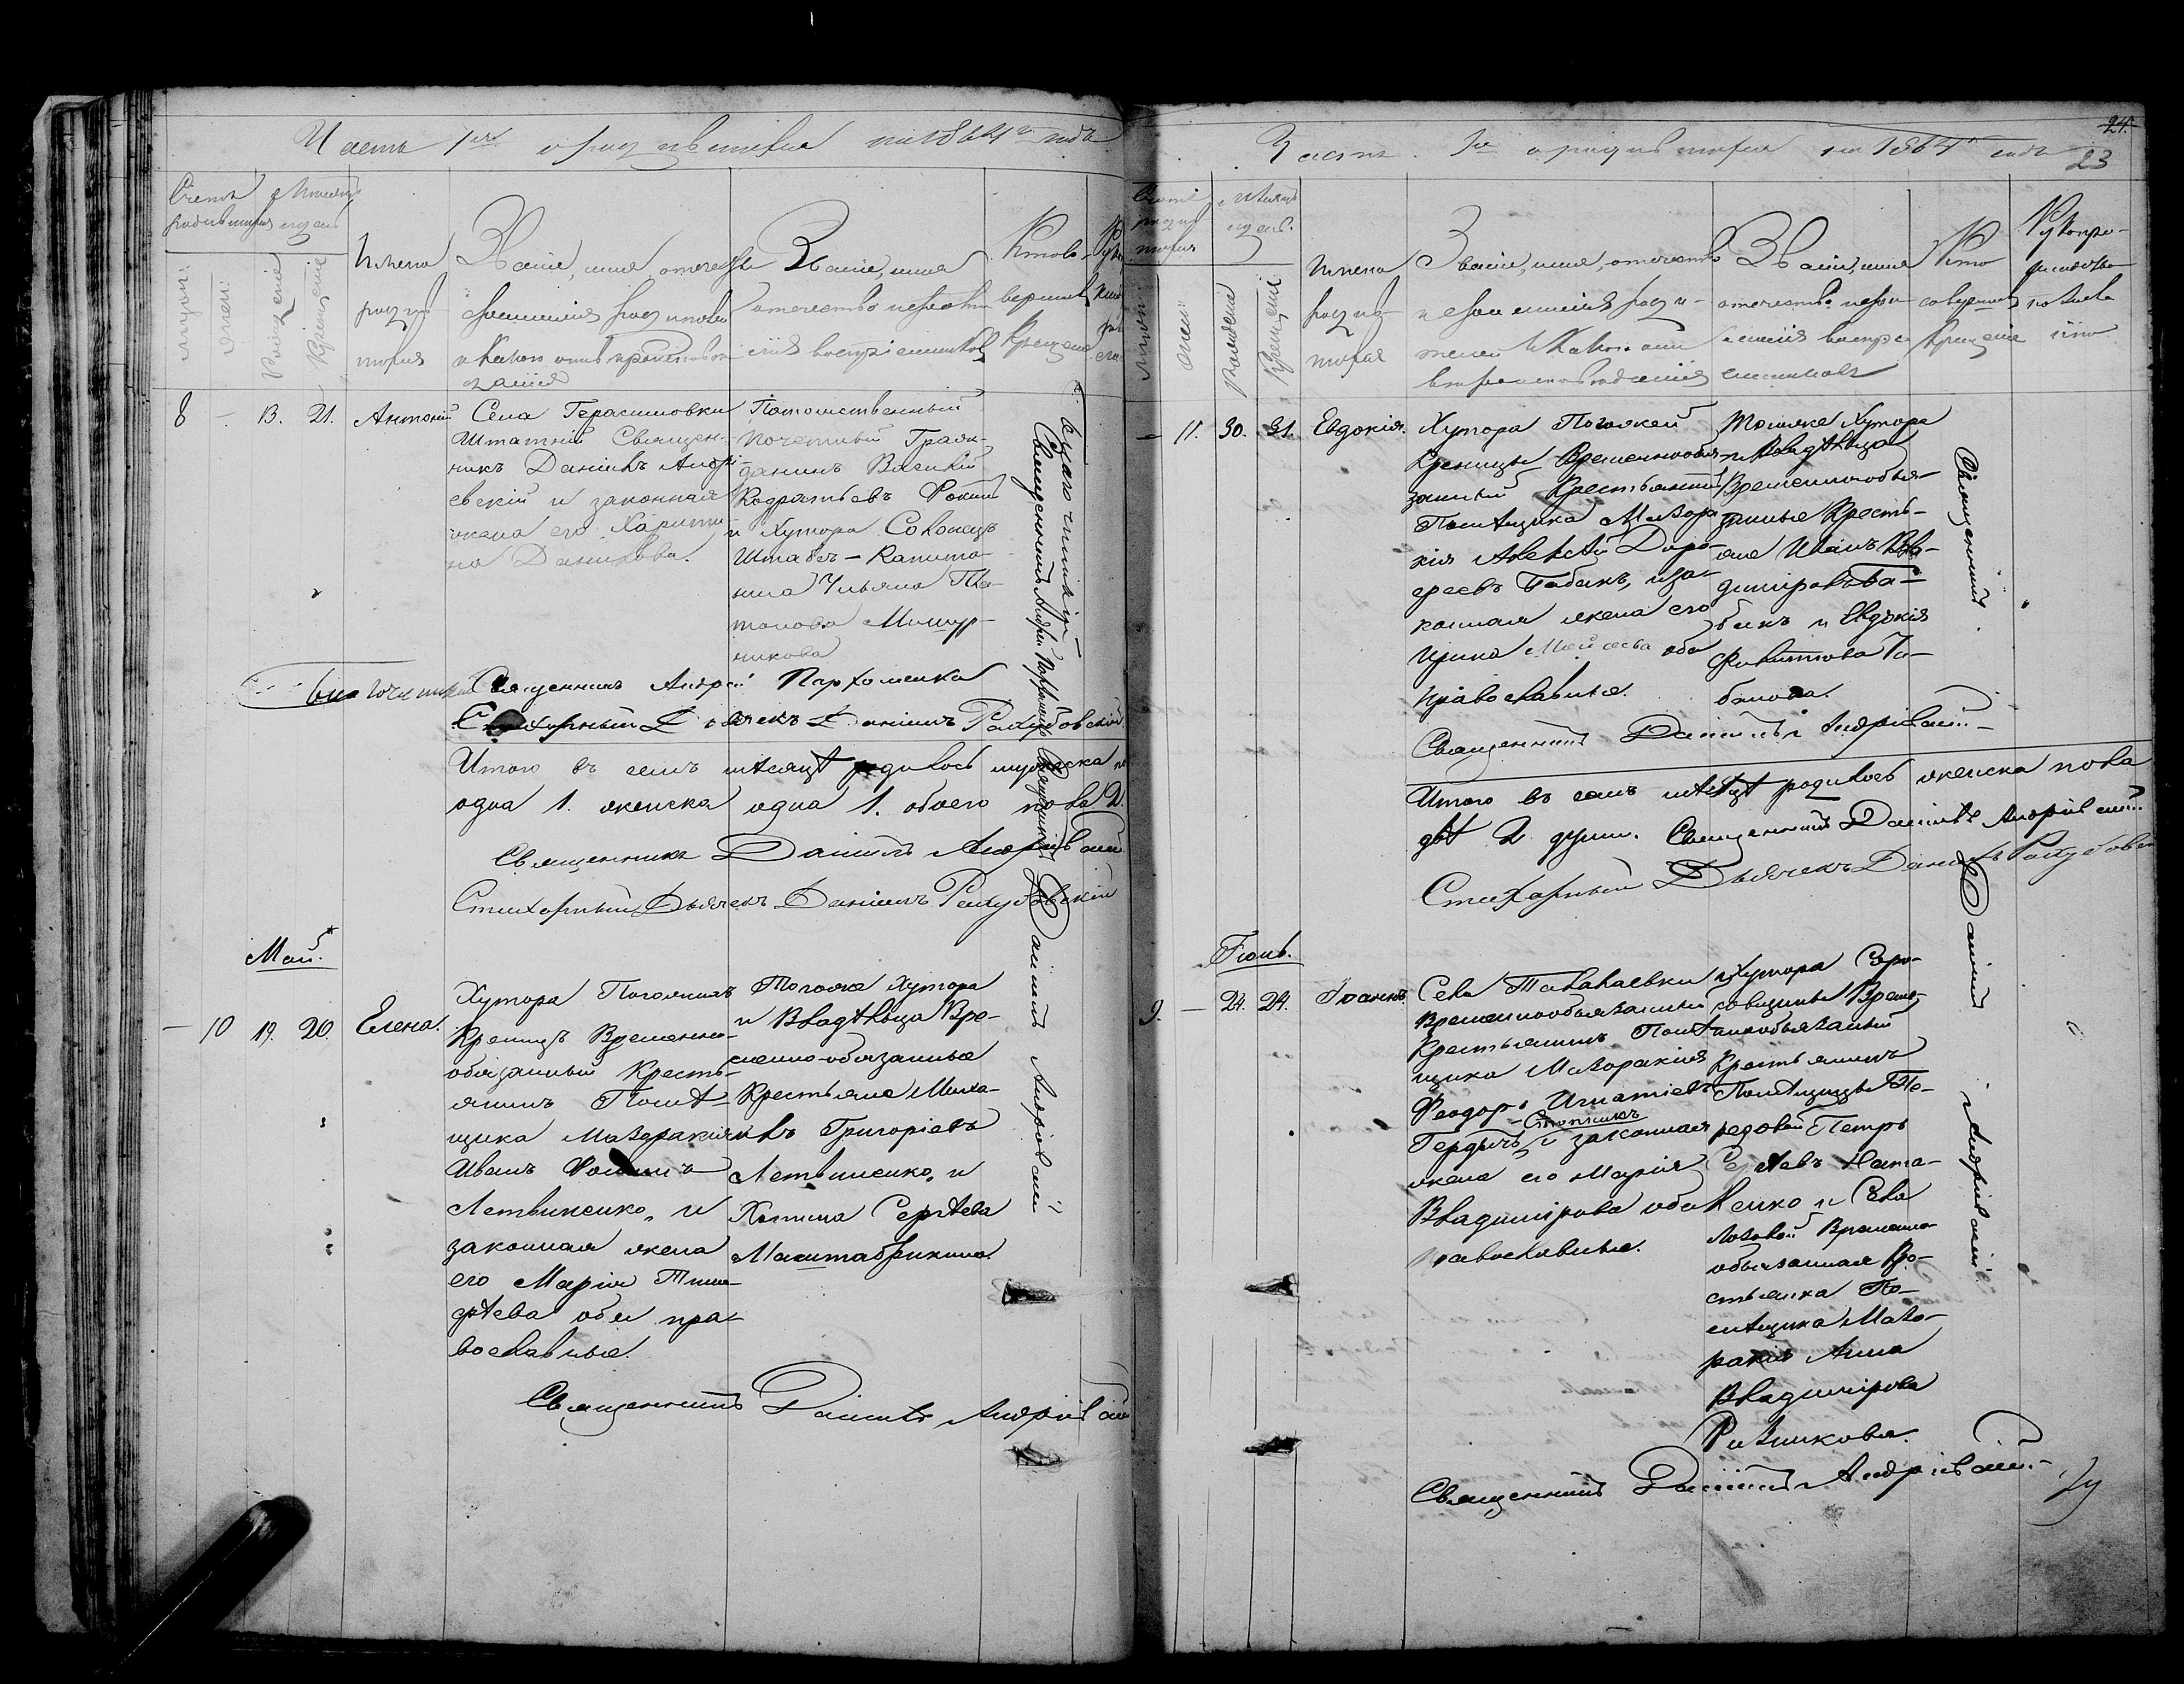 Часть 1я о родившихся на 1864й годъ
Счетъ родившихся
Мѣсяцъ и день
мужск:
женск:
Рожденіе
Крещеніе
Имена
родив
шихся
Званіе, имя, отчество
и фамилія родителей
и какого они вѣроисповѣ
данія
Званіе, имя
отчество и фами
лія воспріемниковъ
Кто со
вершилъ
Крещеніе
8 - 13. 21. Антоній
Села Герасимовки
Штатній Священ-
никъ Даніилъ Андрі-
евскій и законная
жена его Харити
на Данилова.
Потомственный
почетный Граж-
данинъ Василій
Кодратьевъ Фокинъ
и Хутора
Штабсъ-Капита
нша Ульяна Пла-
тонова Мишур-
никова
Благочинный
Священникъ Андрей Пархоменко
Священникъ Андрей Пархоменко
Стихарный Дьячекъ Даніилъ
Итого въ семъ мѣсяцѣ родилось мужеска по
одна 1. женска одна 1. обоего пола 2.
Священникъ Даніилъ Андріевскій
Стихарный Дьячекъ Даніилъ
Май.
- 10 19. 20. Елена.
Хутора
Криницъ Временно
обязанный Кресть-
янинъ Помѣ-
щика Мазаракія
Иванъ Фоминъ
Летвиненко, и
законная жена
его Марія Тимо-
фѣева оба пра-
вославные.
Того же Хутора
и Владѣльца Вре-
менно-обязанные
Крестьяне Миха-
илъ Григоріевъ
Летвиненко, и
Сергѣева
Священникъ Даніилъ Андріевскій
Священникъ Даніилъ Андріевскій
Часть 1я о родившихся на 1864й годъ
24.
23
Счетъ
родив
шихся
Мѣсяцъ
и день.
мужск:
женск:
Рожденіе
Крещеніе
Имена
родив-
шихся
Званіе, имя, отчество
и фамилія роди-
телей и какого они
вѣроисповѣданія
Званіе, имя
отчество и фа-
милія воспрі-
емниковъ
Кто
совершилъ
Крещеніе
Рукопри-
кладство
по жела
нію
- 11. 30. 31. Евдокія.
Хутора
Криницы Временнообя-
занный Крестьянинъ
Помѣщика Мазара
кія Алексѣй Доро-
феевъ Бабакъ, и за-
конная жена его
Ирина Моисѣева оба
православные.
Того же Хутора
и Владѣльца
Временнообяз-
анные Кресть-
яне Иванъ Вла-
диміровъ Ба-
бакъ и Евдокія
Филиппова Ба-
бакова.
Священникъ Даніилъ Андріевскій
Итого въ семъ мѣсяцѣ родилось женска пола
двѣ 2. души. Священникъ Даніилъ Андріевскій
Стихарный Дьячекъ Даніилъ
Іюнь.
9. - 24. 24. Іоаннъ.
Села
Временнообязанный
Крестьянинъ Помѣ
щика Мазаракія
Феодоръ Игнатіевъ
Гердычъ и законная
жена его Марія
Владимірова оба
православные.
Хутора
Време-
ннообязанный
Крестьянинъ
Помѣщицы По-
редовой Петръ
Сергѣевъ
и Села
Лозовой Временно
обязанная Кре-
стьянка По-
мѣщика Маза-
ракія Анна
Владимірова
Священникъ Даніилъ Андріевскій
Священникъ Даніилъ Андріевскій